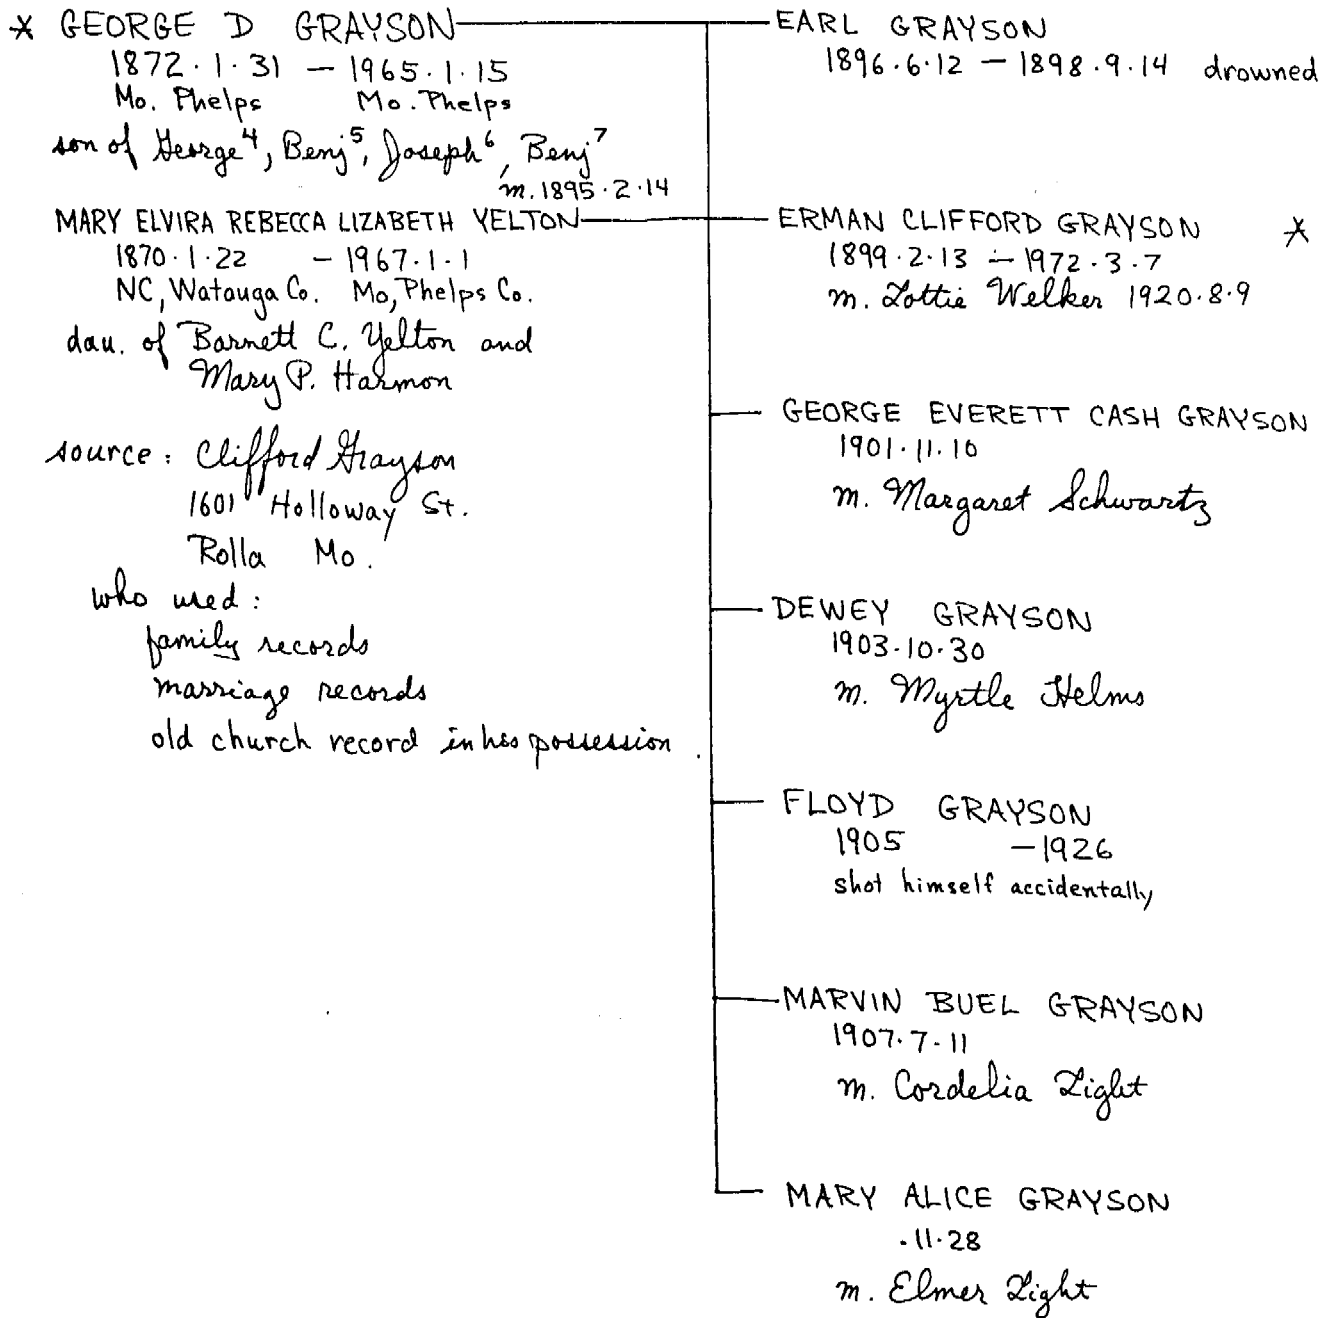 * GEORGE D GRAYSON
1872.1.31 — 1965.1.15
Mo. Phelps Mo. Phelps
son of George⁴, Benj⁵, Joseph⁶, Benj⁷
m. 1895.2.14
MARY ELVIRA REBECCA LIZABETH YELTON
1870.1.22 — 1967.1.1
NC, Watauga Co. Mo, Phelps Co.
dau. of Barnett C. Yelton and
Mary P. Harmon
source: Clifford Grayson
1601 Holloway St.
Rolla Mo.
who used:
family records
marriage records
old church record in his possession.
EARL GRAYSON
1896.6.12 — 1898.9.14 drowned
ERMAN CLIFFORD GRAYSON *
1899.2.13 — 1972.3.7
m. Lottie Welker 1920.8.9
GEORGE EVERETT CASH GRAYSON
1901.11.10
m. Margaret Schwartz
DEWEY GRAYSON
1903.10.30
m. Myrtle Helms
FLOYD GRAYSON
1905 — 1926
shot himself accidentally
MARVIN BUEL GRAYSON
1907.7.11
m. Cordelia Light
MARY ALICE GRAYSON
.11.28
m. Elmer Light